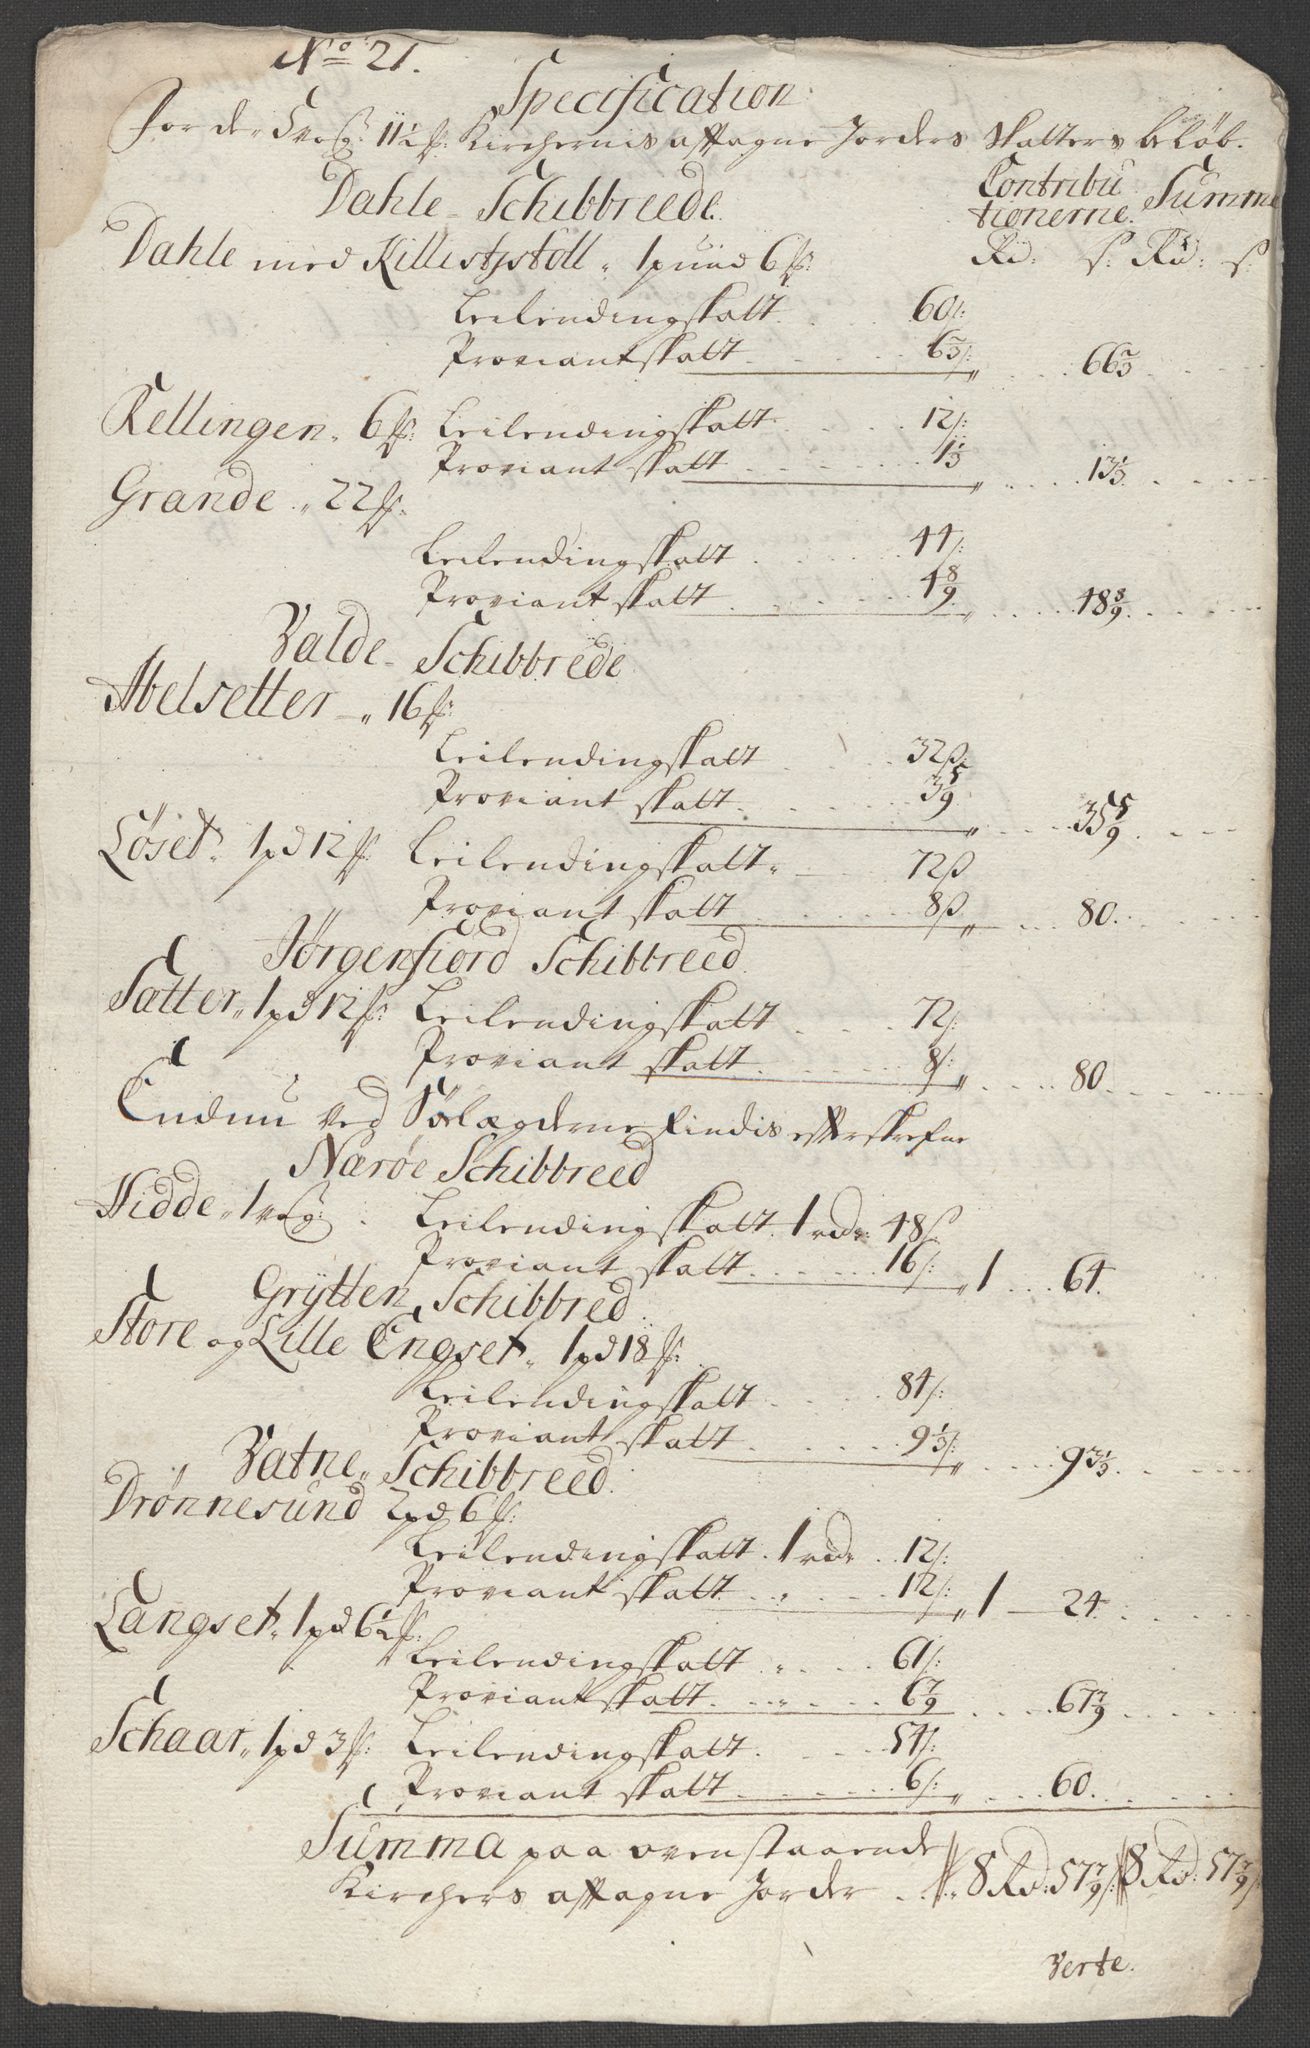 No 21.
Specification
For de 5 vog: 11½ ß: Kirchernis afftagne Jorders Skatters beløb.
Dahle Schibbreede. Contributionerne. Summa
Dahle med Killistsstøll 1 pund 6 ß: Rd: s: Rd: s:
Leilendingskatt 60 s:
Proviantskatt 6 2/3 s: 66 2/3
Kellingen 6 ß: Leilendingskatt 12 s:
Proviant skatt 1 1/3 13 1/3
Grande 22 ß:
Leilendingskatt 44 s:
Proviant skatt 4 8/9 48 8/9
Valde Schibbrede
Abelsetter 16 ß:
Leilendingskatt 32 ß
Proviant skatt 3 5/9 35 5/9
Løset 1 pd 12 ß: Leilendingskatt 72 ß
Proviant skatt 8 ß 80.
Jørgenfiord Schibbreed
Sætter 1 pd 12 ß: Leilendingskatt 72 s:
Proviant skatt 8 s: 80.
Endnu ved Søelægderne findis efterskrefne
Nærøe Schibbreed
Hidde 1 vog: Leilendingskatt 1 rdr 48 s
Proviant skatt 16 s: 1 64.
Grytten Schibbred
Store og Lille Engset 1 pd 18 ß:
Leilendingskatt 84 s:
Proviant skatt 9 1/3 s: 93 1/3
Vatne Schibbreed.
Drønnesund 2 pd 6 ß:
Leilendingskatt 1 rdr 12 s:
Proviant skatt 12 s: 1 24.
Langset 1 pd 6½ ß:
Leilendingskatt 61 s:
Proviantskatt 6 7/9 67 7/9
Schaar 1 pd 3 ß: Leilendingskatt 54 s:
Proviant skatt 6 s: 60.
Summa paa ovenstaaende
Kirchers afftagne Jorder 8 Rd: 57 7/9 s: 8 Rd: 57 7/9 s:
Verte.